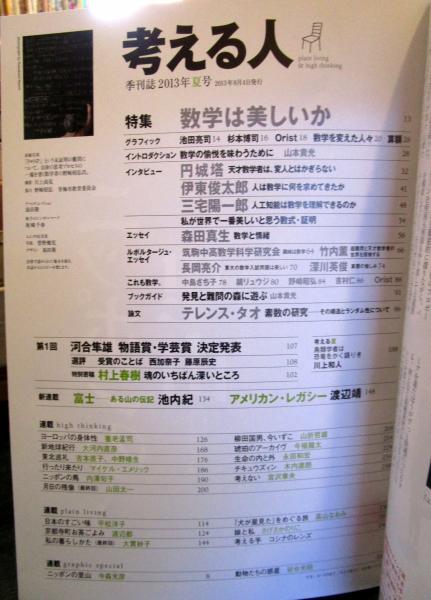 考える人
plain living
& high thinking
季刊誌 2013年夏号 2013年8月4日発行
特集 数学は美しいか 13
グラフィック 池田亮司 14 杉本博司 16 Orist 18 数学を変えた人々 20 算額 26
イントロダクション 数学の愉悦を味わうために 山本貴光 28
インタビュー 円城塔 天才数学者は、変人とはかぎらない 32
伊東俊太郎 人は数学に何を求めてきたか 41
三宅陽一郎 人工知能は数学を理解できるのか 48
私が世界で一番美しいと思う数式・証明 54
エッセイ 森田真生 数学と情緒 56
ルポルタージュ・エッセイ 筑駒中高数学科学研究会 64 竹内薫 66
長岡亮介 東大の数学入試問題は美しい 70 深川英俊 74
これも数学。 中島さち子 78 野崎昭弘 84 Orist 88
ブックガイド 発見と難問の森に遊ぶ 山本貴光 91
論文 テレンス・タオ 素数の研究 その構造とランダム性について
第1回 河合隼雄 物語賞・学芸賞 決定発表 107
選評 受賞のことば 西加奈子 藤原辰史 108
特別寄稿 村上春樹 魂のいちばん深いところ 102
考える夏
鳥類学者は
恐竜をかく語りき
川上和人
新連載 富士 ある山の伝記 池内紀 134 アメリカン・レガシー 渡辺靖 148
連載 high thinking
ヨーロッパの身体性 養老孟司 126
新地球紀行 大河内直彦 168
東北道民 吉本医子、中野晴生 176
行ったり来たり マイケル・エメリック 186
ニッポンの馬 内澤旬子 190
月日の残像（最終回） 山田太一 200
柳田国男、今いずこ 山折哲雄
琥珀のアーカイヴ 今福龍太
生命の内と外 永田和宏
チキュウズィン 木内達朗
考えない 宮沢章夫
連載 plain living
日本のすごい味 平松洋子 114
京都寺町お茶ごよみ 渡辺都 124
私の暮らしかた（最終回） 大貫妙子 144
「犬が星見た」をめぐる旅 高山なおみ
娘と私 さげさかのりこ
考える手 コシナのレンズ
連載 graphic special
ニッポンの里山 今森光彦 8
動物たちの惑星 岩合光昭